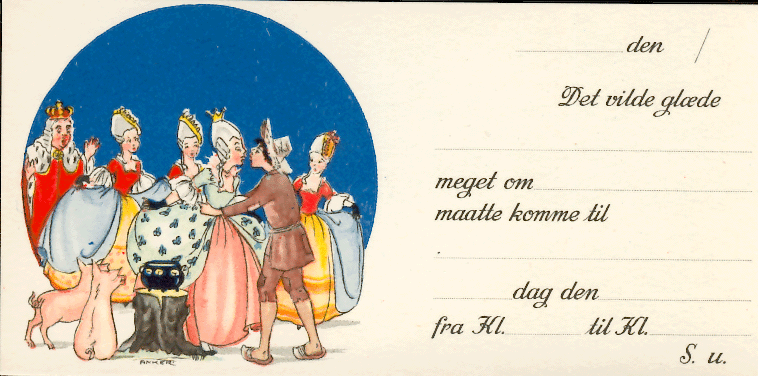 den /
Det vilde glæde
meget om
maatte komme til
dag den
fra Kl. til Kl.
S. u.
ANKER